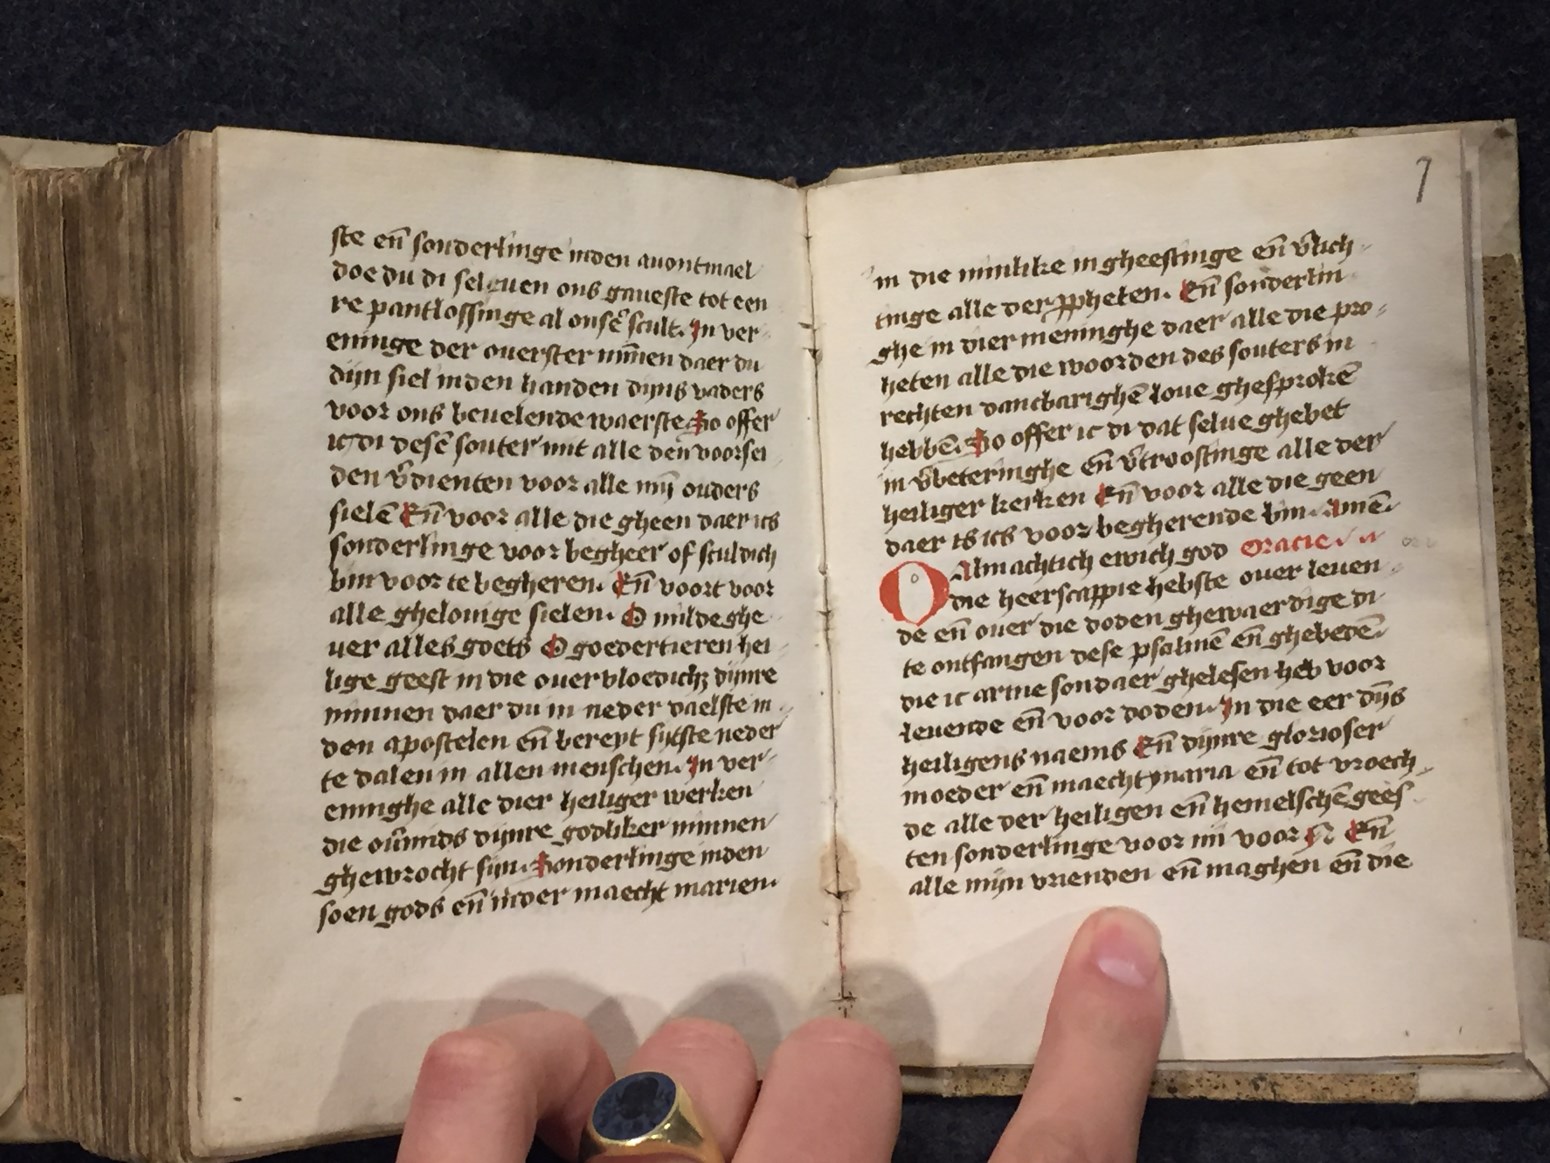 ste en̄ sonderlinge inden auontmael
doe du di seluen ons gaueste tot een
re pantlossinge al onsē scult. In ver
eninge der ouerster mīnen daer du
dijn siel inden handen dijns vaders
voor ons beuelende waerste. So offer
ic di desē souter mit alle den voorsei
den v̄dienten voor alle mijn̄ ouders
sielē En̄ voor alle die gheen daer ics
sonderlinge voor begheer of sculdich
bin voor te begheren. En̄ voort voor
alle ghelouige sielen. O milde ghe
uer alles goets O goedertieren hei
lige geest in die oueruloedichz dijnre
minnen daer du in neder daelste in
den apostelen en̄ bereyt sijtste neder
te dalen in allen menschen. In ver
eninghe alle dier heiliger werken
die ou̅mids dijnre godliker minnen
ghewrocht sijn. Sonderlinge inden
soen gods en̄ inder maecht marien.
7
in die minlike ingheestinge en̄ v̄lich
tinge alle der ꝓpheten. En̄ sonderlin
ghe in dier meninghe daer alle die pro
heten alle die woorden des souters in
rechten dancbarighē loue ghesprokē
hebbē. So offer ic di dat selue ghebet
in v̄beteringhe en̄ v̄troostinge alle der
heiliger kerken En̄ voor alle die geen
daer is ics voor begherende bin. Amē.
O Almachtich ewich god Oracie
die heerscappie hebste ouer leuen
de en̄ ouer die doden ghewaerdige di
te ontfangen dese psalmē en̄ ghebedē.
die ic arme sondaer ghelesen heb voor
leuende en̄ voor doden. In die eer dijn̄s
heiligens naems En̄ dijnre glorioser
moeder en̄ maecht maria en̄ tot vroech
de alle der heiligen en̄ hemelschē gees
ten sonderlinge voor mi voor N En̄
alle mijn vrienden en̄ maghen en̄ die